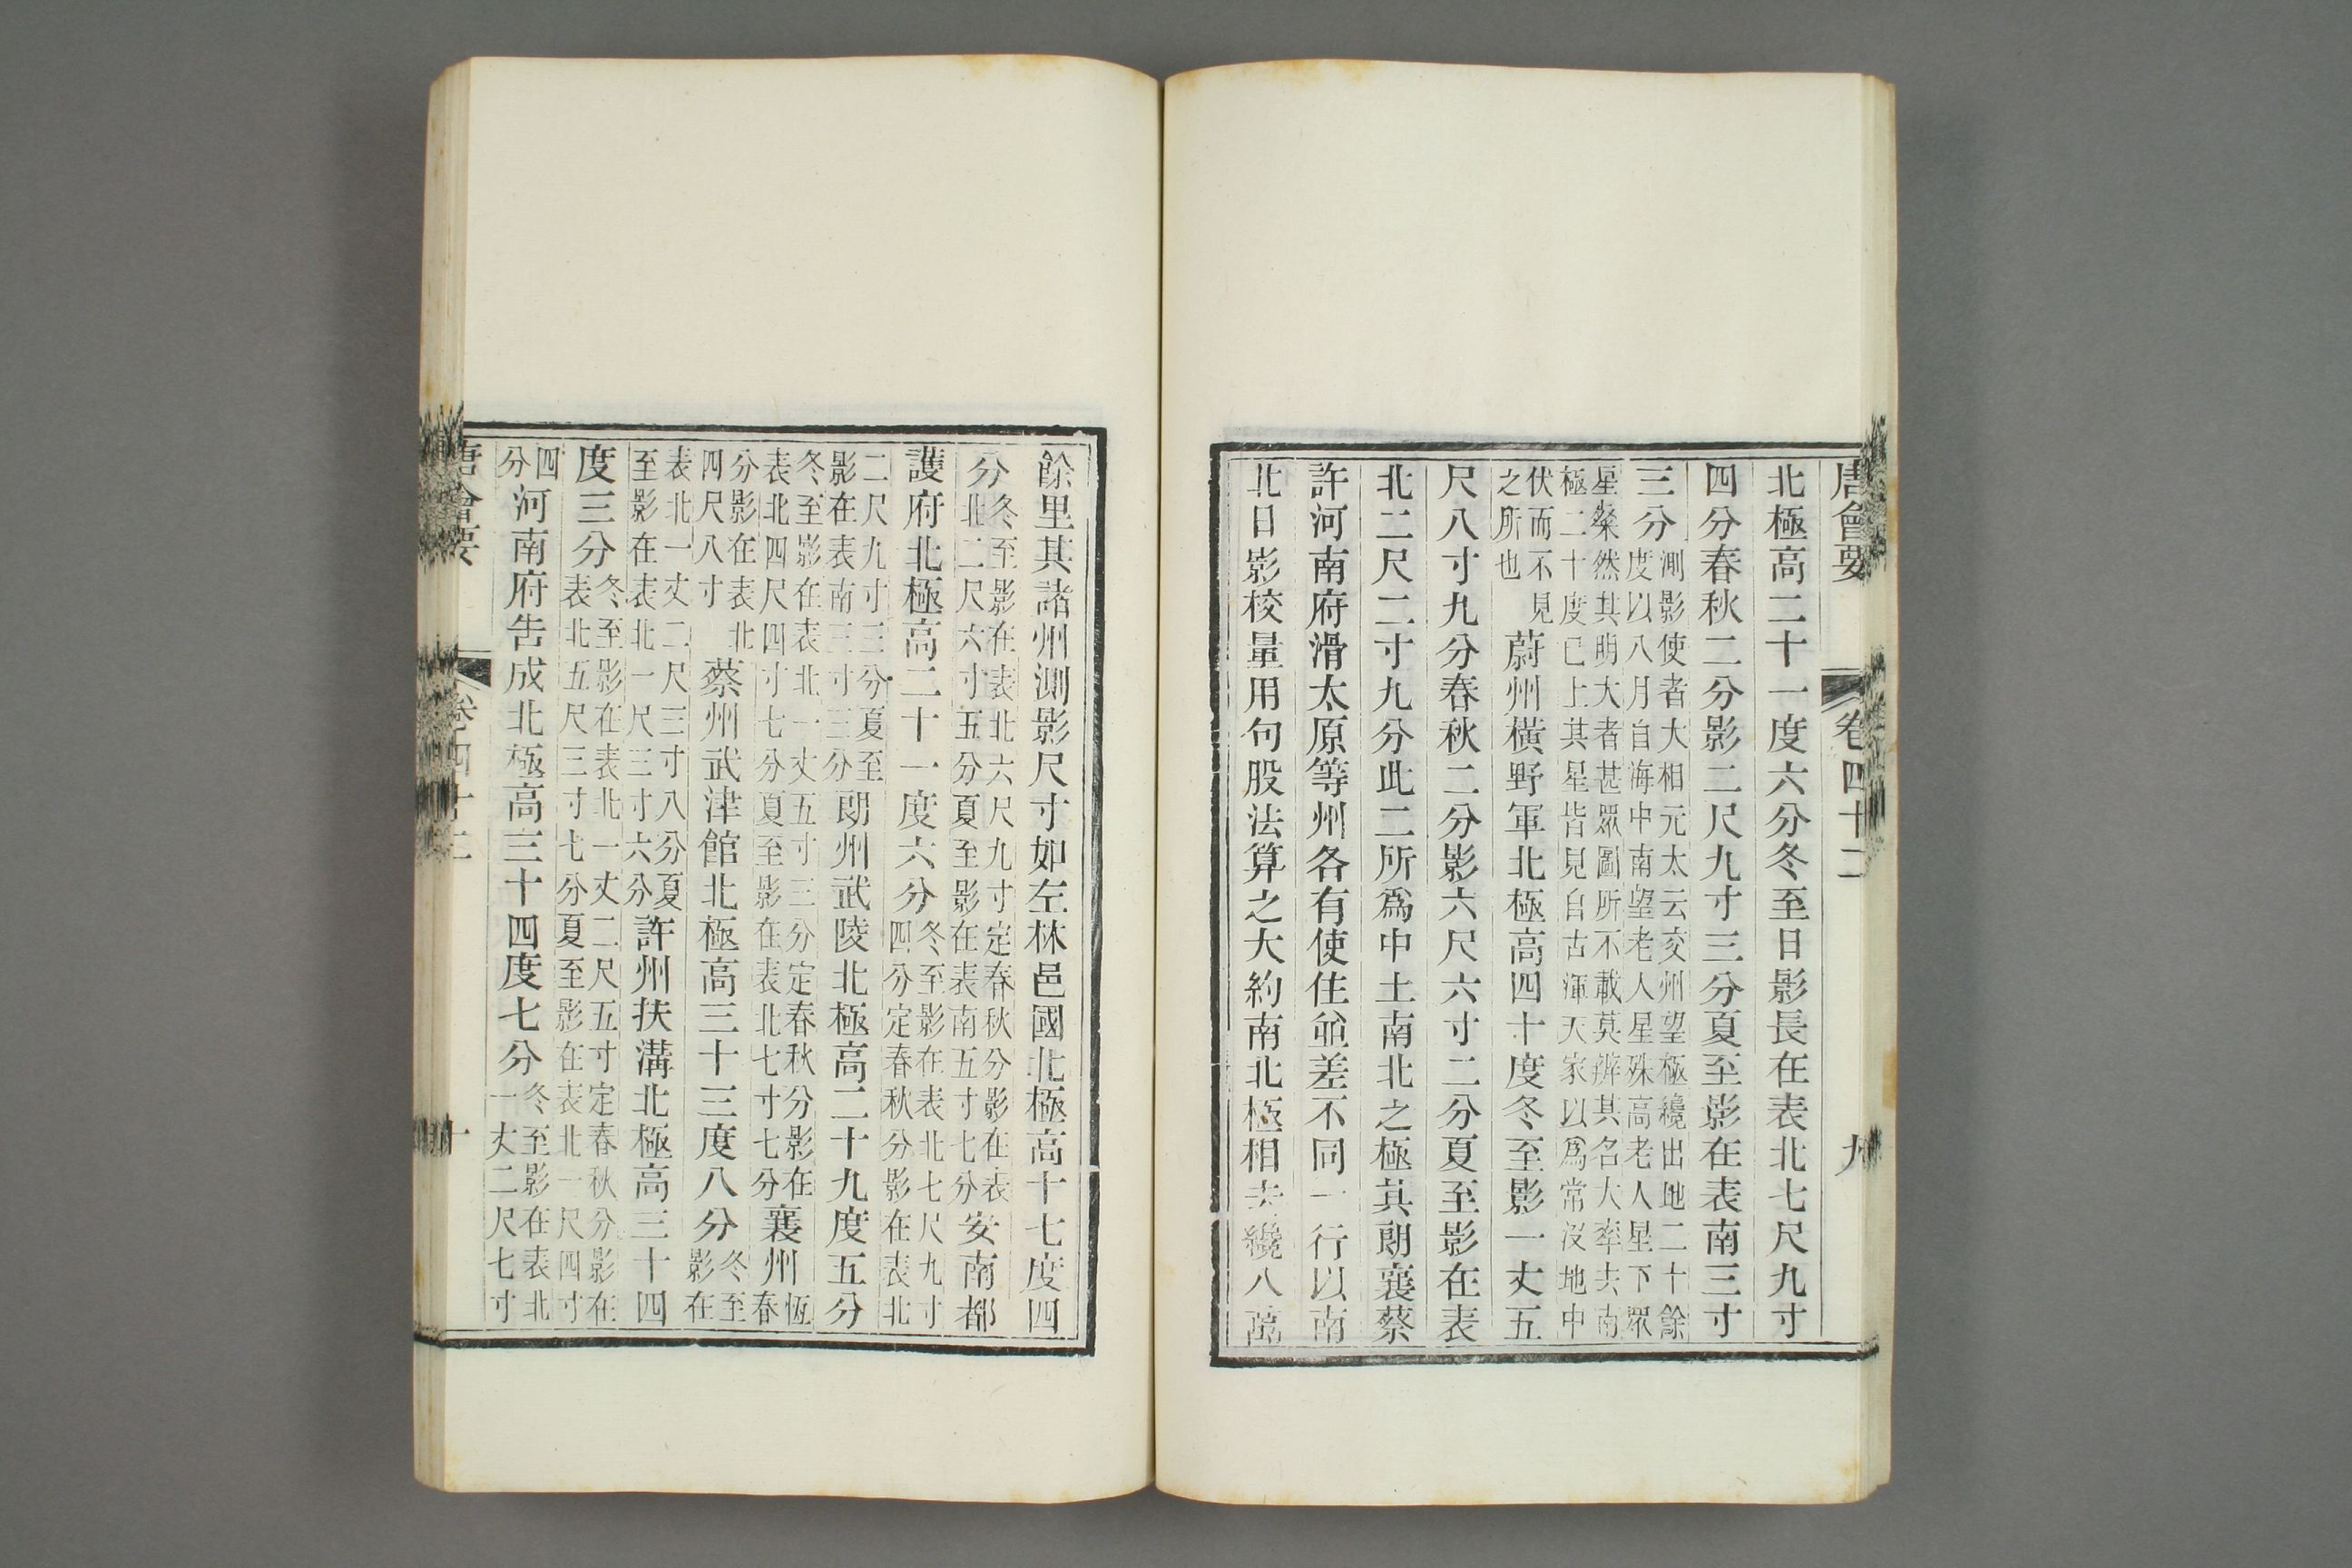 唐會要 卷四十二 九
北極高二十一度六分冬至日影長在表北七尺九寸
四分春秋二分影二尺九寸三分夏至影在表南三寸
三分
測影使者大相元太云交州望極纔出地二十餘
度以八月自海中南望老人星殊高老人星下眾
星粲然其明大者甚眾圖所不載莫辨其名大率去南
極二十度已上其星皆見自古渾天家以爲常沒地中
伏而不見
之所也
蔚州橫野軍北極高四十度冬至影一丈五
尺八寸九分春秋二分影六尺六寸二分夏至影在表
北二尺二寸九分此二所爲中土南北之極其朗襄蔡
許河南府滑太原等州各有使住並差不同一行以南
北日影校量用句股法算之大約南北極相去纔八萬
餘里其諸州測影尺寸如左林邑國北極高十七度四
分
冬至影在表北六尺九寸定春秋分影在表
北二尺六寸五分夏至影在表南五寸七分
安南都
護府北極高二十一度六分
冬至影在表北七尺九寸
四分定春秋分影在表北
二尺九寸三分夏至
影在表南三寸三分
朗州武陵北極高二十九度五分
冬至影在表北一丈五寸三分定春秋分影在
表北四尺四寸七分夏至影在表北七寸七分
襄州
恆
春
分影在表北
四尺八寸
蔡州武津館北極高三十三度八分
冬至
影在
表北一丈二尺三寸八分夏
至影在表北一尺三寸六分
許州扶溝北極高三十四
度三分
冬至影在表北一丈二尺五寸定春秋分影在
表北五尺三寸七分夏至影在表北一尺四寸
四
分
河南府告成北極高三十四度七分
冬至影在表北
一丈二尺七寸
唐會要 卷四十二 十